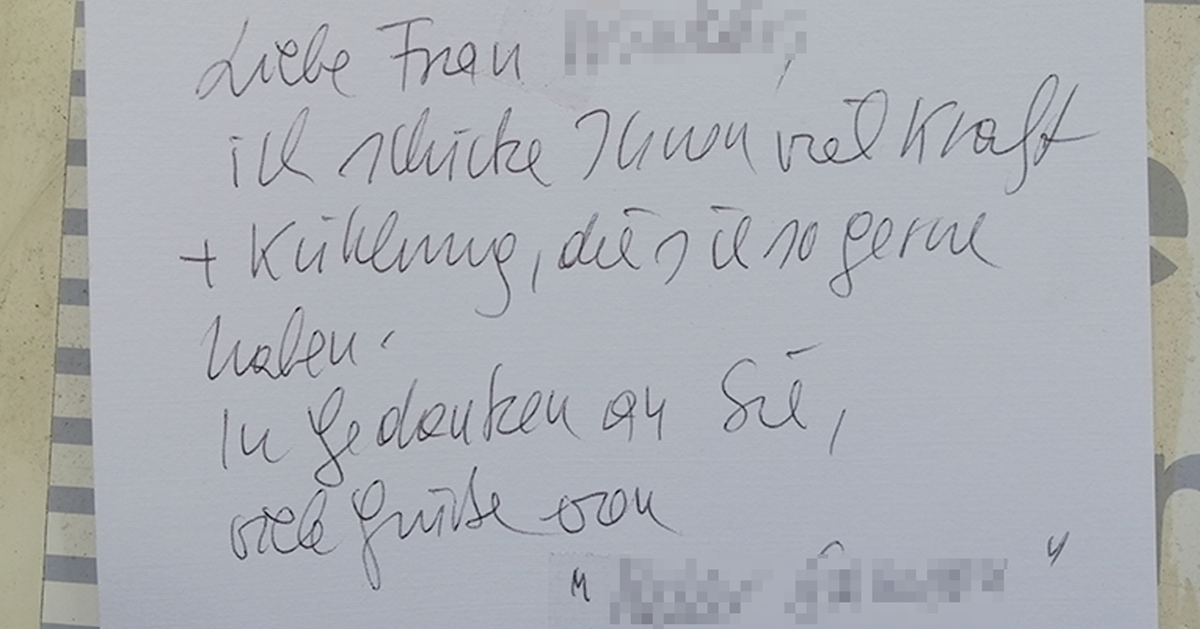 Liebe Frau
ich schicke Ihnen viel Kraft
+ Kühlung, die Sie so gerne
haben.
In Gedanken an Sie,
viele Grüße von